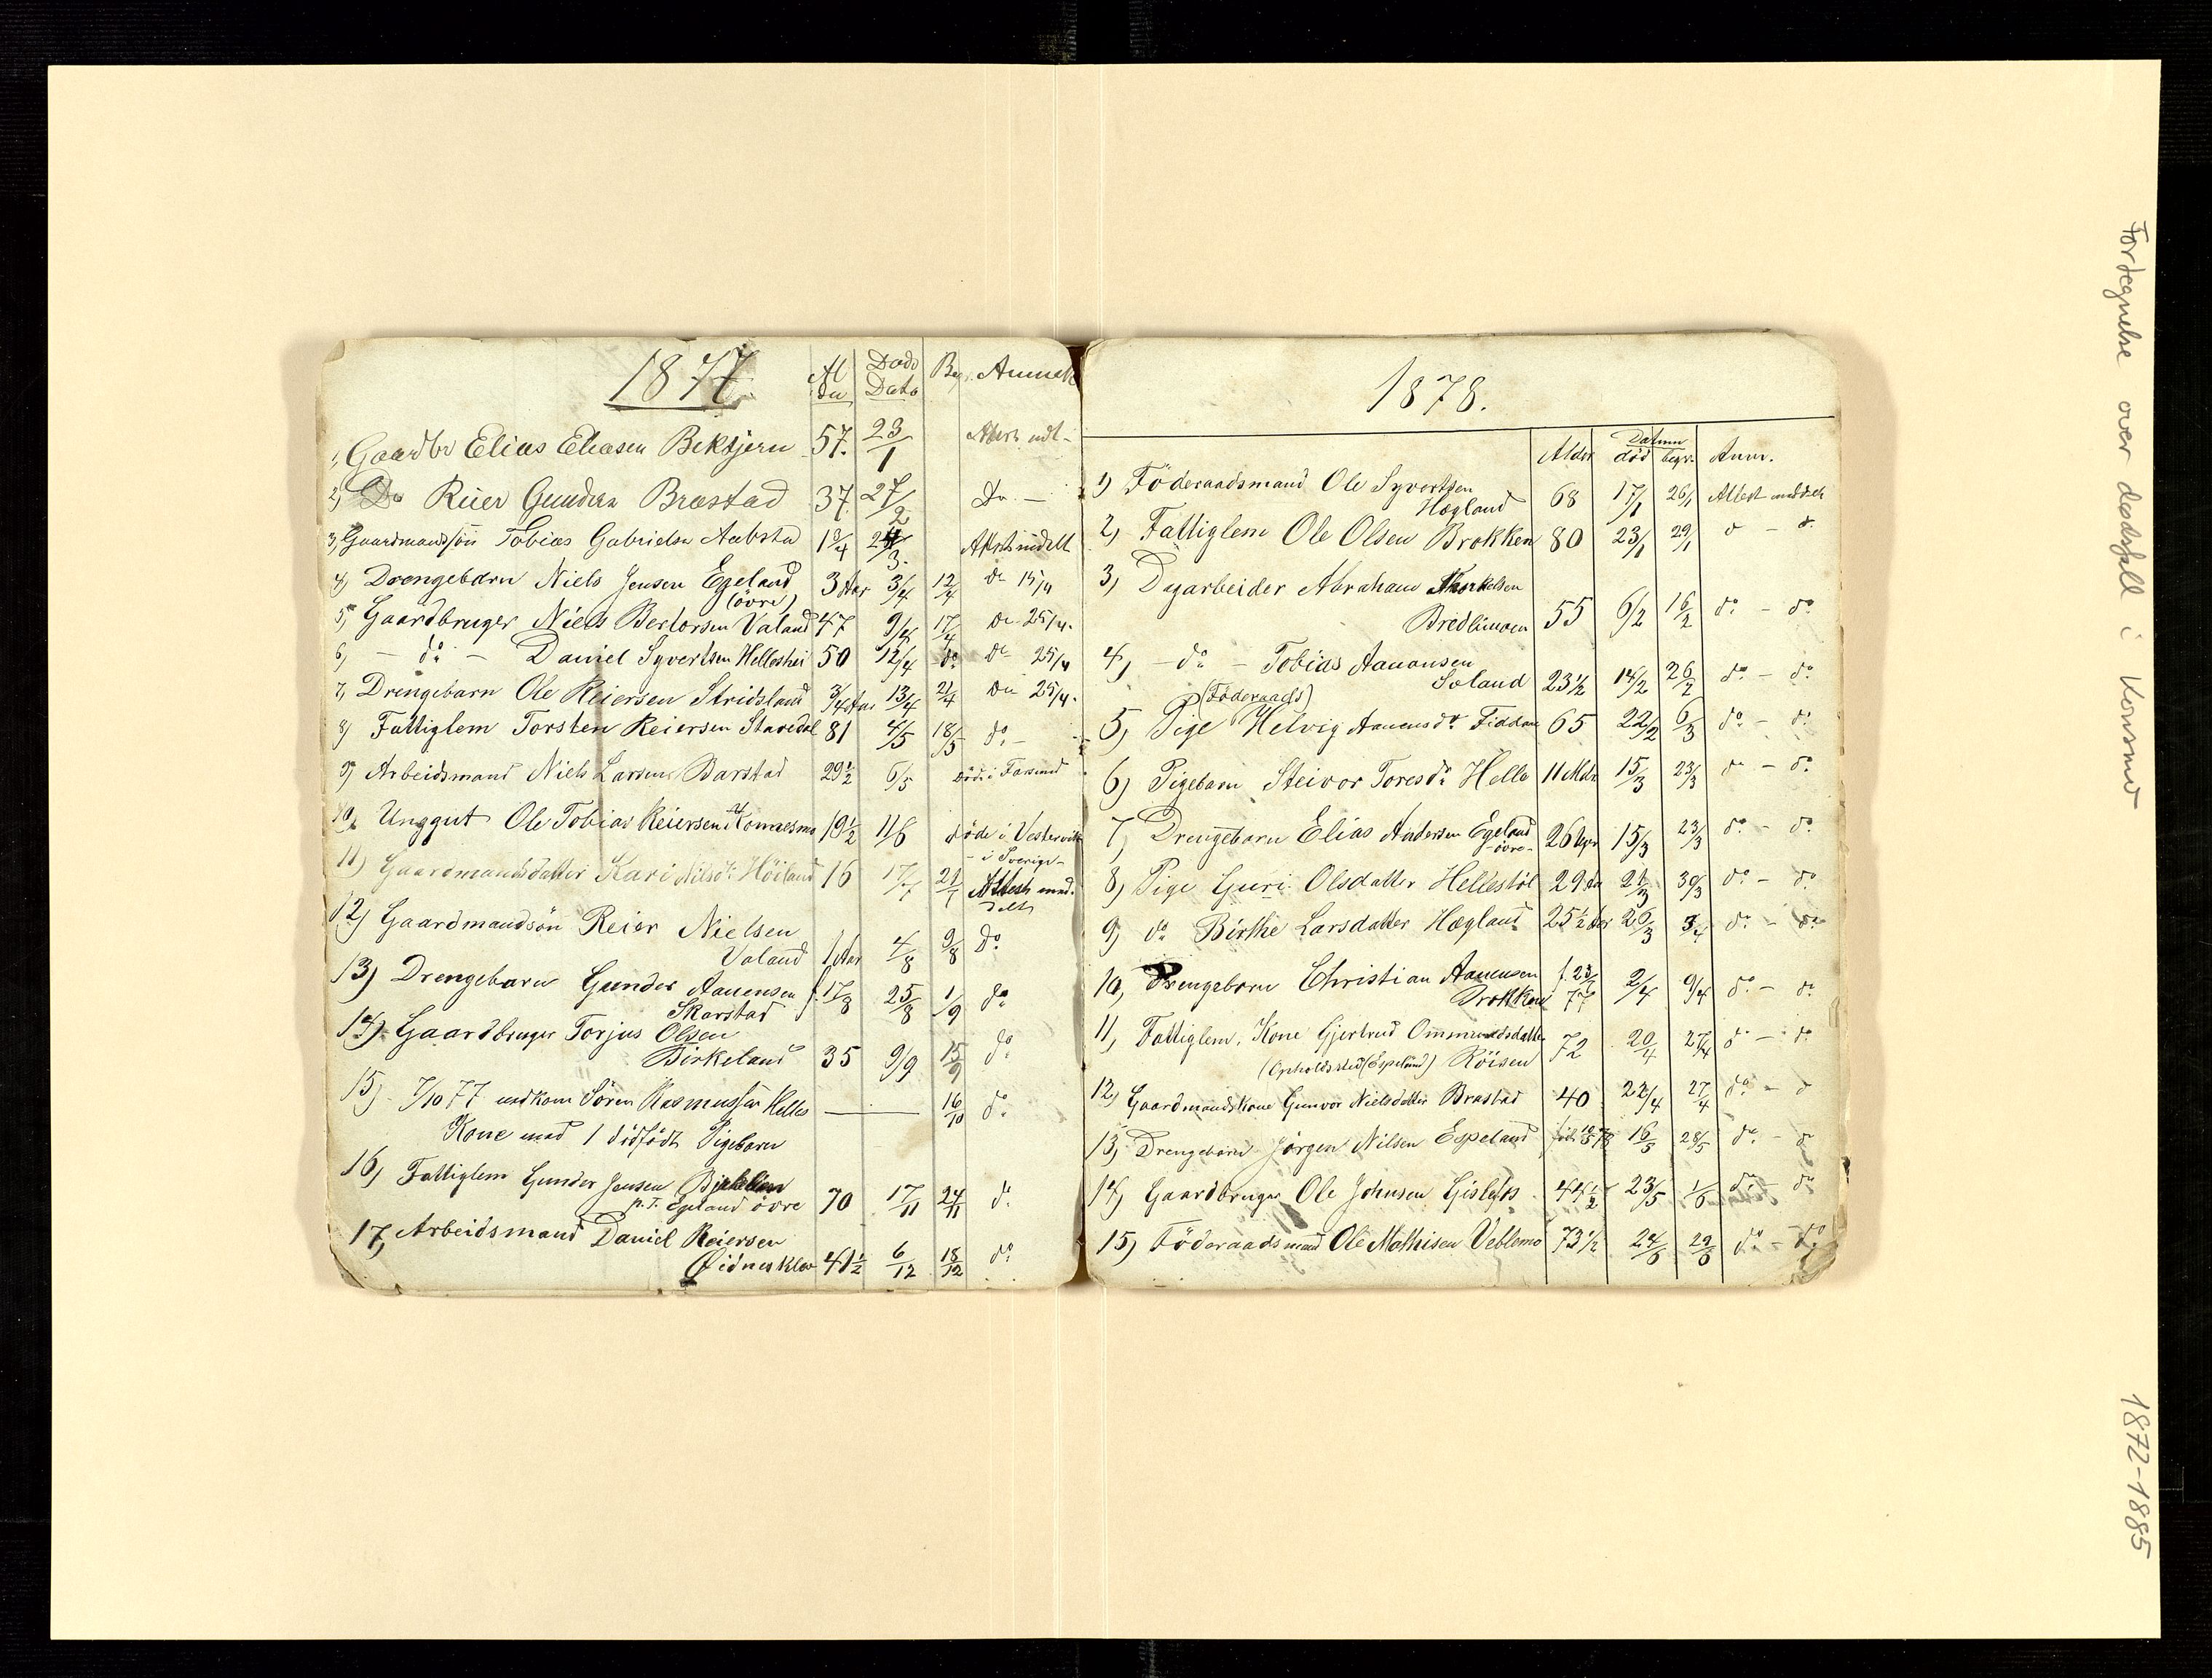 1877.
Al der Döds Dato Begr. Anmerk
1, Gaardbr Elias Eliasen Bekkjern 57. 23/1 Attest udt-
2, Do Reier Gundersen Brastad 37. 27/2 Do. —
3, Gaardmandssön Tobias Gabrielsen Aabstad 1 3/4 24/3. Attest uddelt
4) Drengebarn Niels Jensen Egeland 3 Aar 3/4 12/4 do 15/4
(övre)
5, Gaardbruger Niels Bertorsen Valand 47 9/4 17/4 do 25/4.
6, — do — Daniel Syvertsen Helleshei 50 12/4 do. do 25/4
7, Drengebarn Ole Reiersen Stridsland 3/4 Aar 13/4 21/4 do 25/4.
8) Fattiglem Torsten Reiersen Stavedal 81 4/5 18/5 do. —
9, Arbeidsmand Niels Larsen Barstad 29 1/2 6/5 död i Farsund
10, Unggut Ole Tobias Reiersen Komesmo 19 1/2 11/6 döde i Vestervik
- i Sverige-
11) Gaardmandsdatter Kari Nilsdr Höiland 16 17/7 21/7 Attest med-
delt
12) Gaardmandsön Reier Nielsen
Valand 1 Aar 4/8 9/8 Do
13) Drengebarn Gunder Aanensen f. 17/8 25/8 1/9 do
Skarstad
14) Gaardbruger Torjus Olsen
Birkeland 35 9/9 15/9 do
15) 7/10 77 nedkom Sören Rasmussen Helles — 16/10 do.
Kone med 1 dödfödt Pigebarn
16, Fattiglem Gunder Jensen
p.T. Egeland övre 70 17/11 24/11 do
17, Arbeidsmand Daniel Reiersen
Öidnesklev 41 1/2 6/12 18/12 do
1878.
Alder Datum Anm.
död begr.
1) Föderaadsmand Ole Syvertsen
Hægland 68 17/1 26/1 Attest meddelt
2, Fattiglem Ole Olsen Brokken 80 23/1 29/1 do - do.
3, Dagarbeider Abraham Thorkelsen
Bredlimoen 55 6/2 16/2 do. - do.
4, - do - Tobias Aanonsen
Soland 23 1/2 14/2 26/2 do - do.
(Föderaads)
5, Pige Helvig Aanensdr Fiddan 65 22/2 6/3 do - do.
6) Pigebarn Steivor Toresdr Helle 11 Mdr 15/3 23/3 do - do.
7, Drengebarn Elias Andersen Egeland 26 Uger 15/3 23/3 do. - do.
-övre-
8) Pige Guri Olsdatter Hellestöl 29 Aar 21/3 30/3 do. - do.
9, do Birthe Larsdatter Hægland 25 1/2 Aar 26/3 3/4 do. - do.
10, Drengebarn Christian Aanensen f. 23/ 2/4 9/4 do. - do.
Brokken 77
11, Fattiglem. Kone Gjertrud Ommundsdatter 72 20/4 27/4 do - do.
(Opholdssted (Espeland) Röisen
12, Gaardmandskone Gunvor Nielsdatter Brastad 40 22/4 27/4 do - do
13, Drengebarn Jörgen Nilsen Espeland född 10/5 78 16/5 28/5 do. - do
14, Gaardbruger Ole Johnsen Gislefos. 44 1/2 23/5 1/6 do. - do
15) Föderaadsmand Ole Mathisen Veblemo 73 1/2 24/6 29/6 do. - do.
Fortegnelse over dødsfall i Konsmo
1872-1885